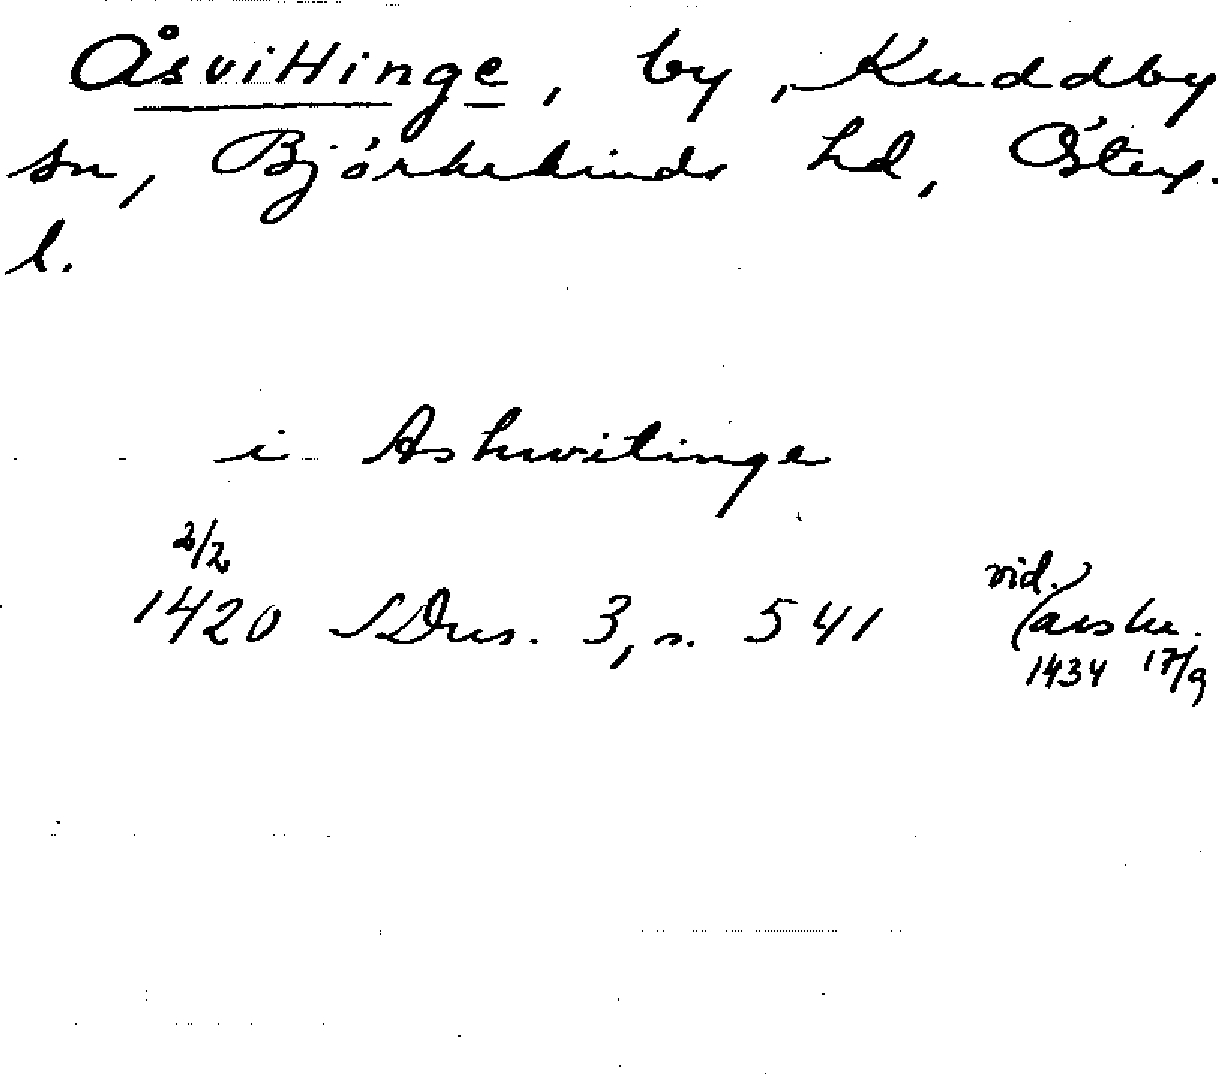 Åsvittinge, by, Kuddby
sn, Björkekinds hd, Österg.
l.
i Ashwitinge
2/2
1420 SDns. 3, s. 541
vid.
(avskr.
1434 17/9